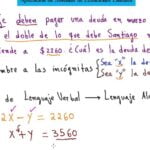 deben pagar una deuda en marzo
el doble de lo que debe Santiago
ende a $2260 ¿Cuál es la deuda de
mbre a las incógnitas { Sea "x" la de
Sea "y" la de
de Lenguaje Verbal → Lenguaje Al
2x - y = 2260
x + y = 3560